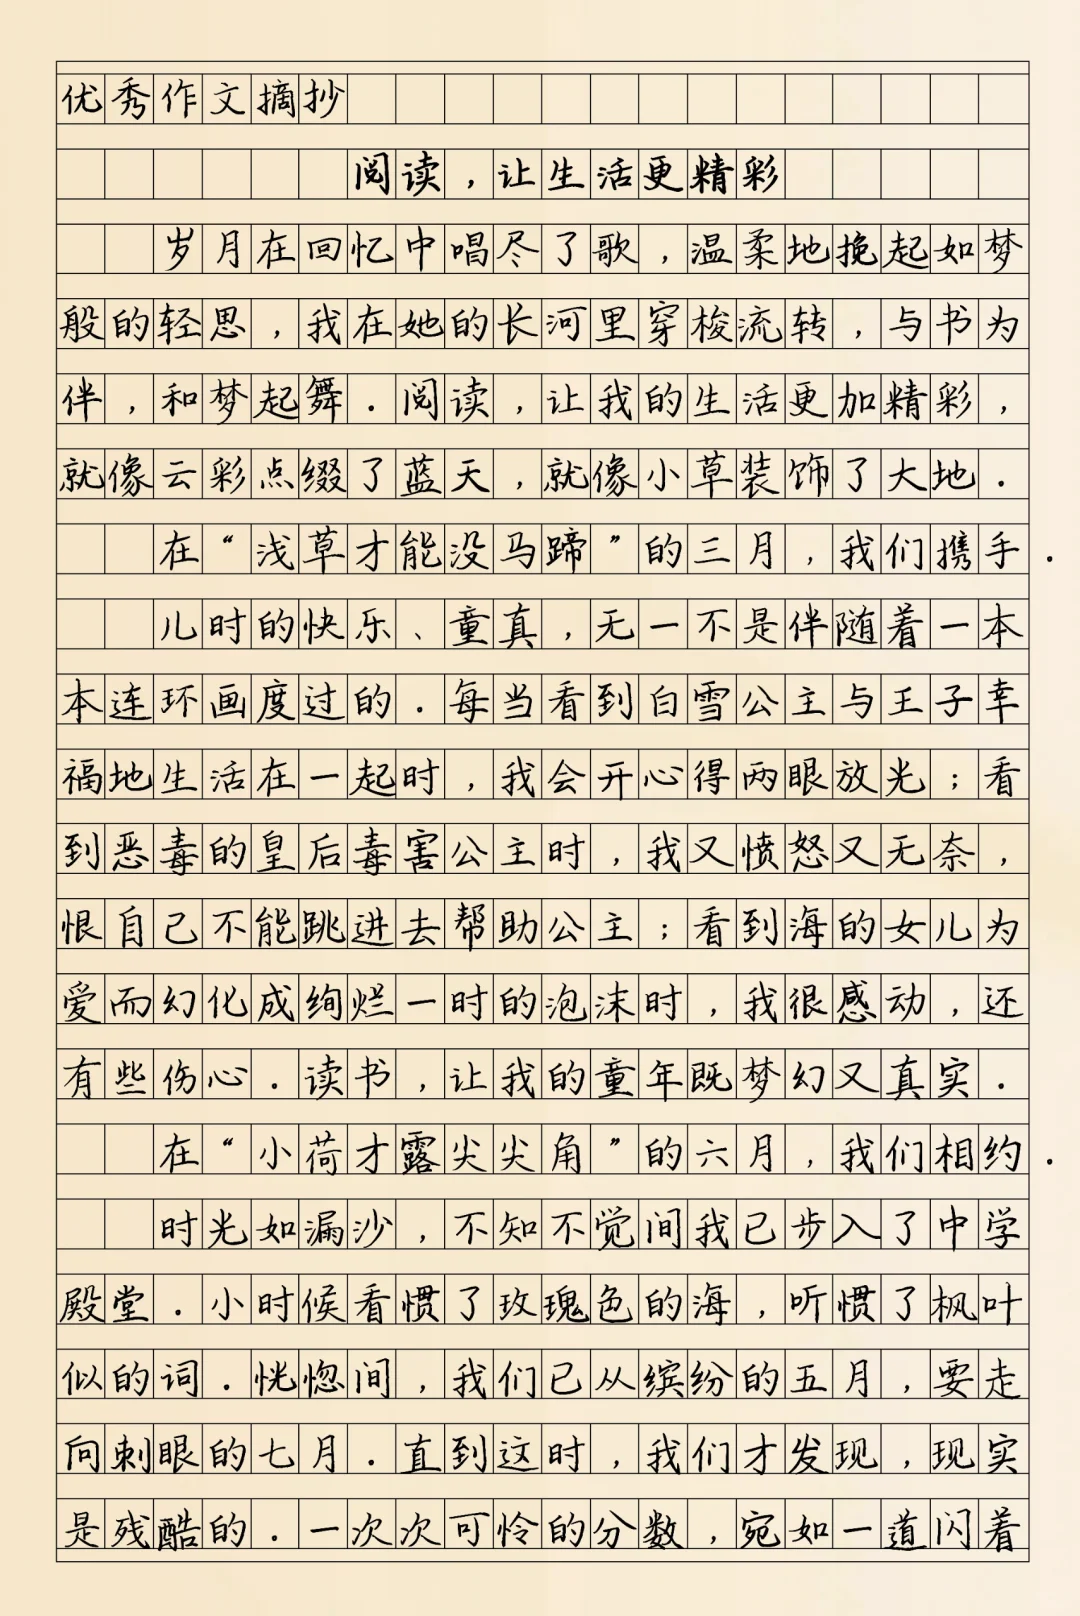 优秀作文摘抄
阅读，让生活更精彩
岁月在回忆中唱尽了歌，温柔地挽起如梦
般的轻思，我在她的长河里穿梭流转，与书为
伴，和梦起舞．阅读，让我的生活更加精彩，
就像云彩点缀了蓝天，就像小草装饰了大地．
在“浅草才能没马蹄”的三月，我们携手．
儿时的快乐、童真，无一不是伴随着一本
本连环画度过的．每当看到白雪公主与王子幸
福地生活在一起时，我会开心得两眼放光；看
到恶毒的皇后毒害公主时，我又愤怒又无奈，
恨自己不能跳进去帮助公主；看到海的女儿为
爱而幻化成绚烂一时的泡沫时，我很感动，还
有些伤心．读书，让我的童年既梦幻又真实．
在“小荷才露尖尖角”的六月，我们相约．
时光如漏沙，不知不觉间我已步入了中学
殿堂．小时候看惯了玫瑰色的海，听惯了枫叶
似的词．恍惚间，我们已从缤纷的五月，要走
向刺眼的七月．直到这时，我们才发现，现实
是残酷的．一次次可怜的分数，宛如一道闪着